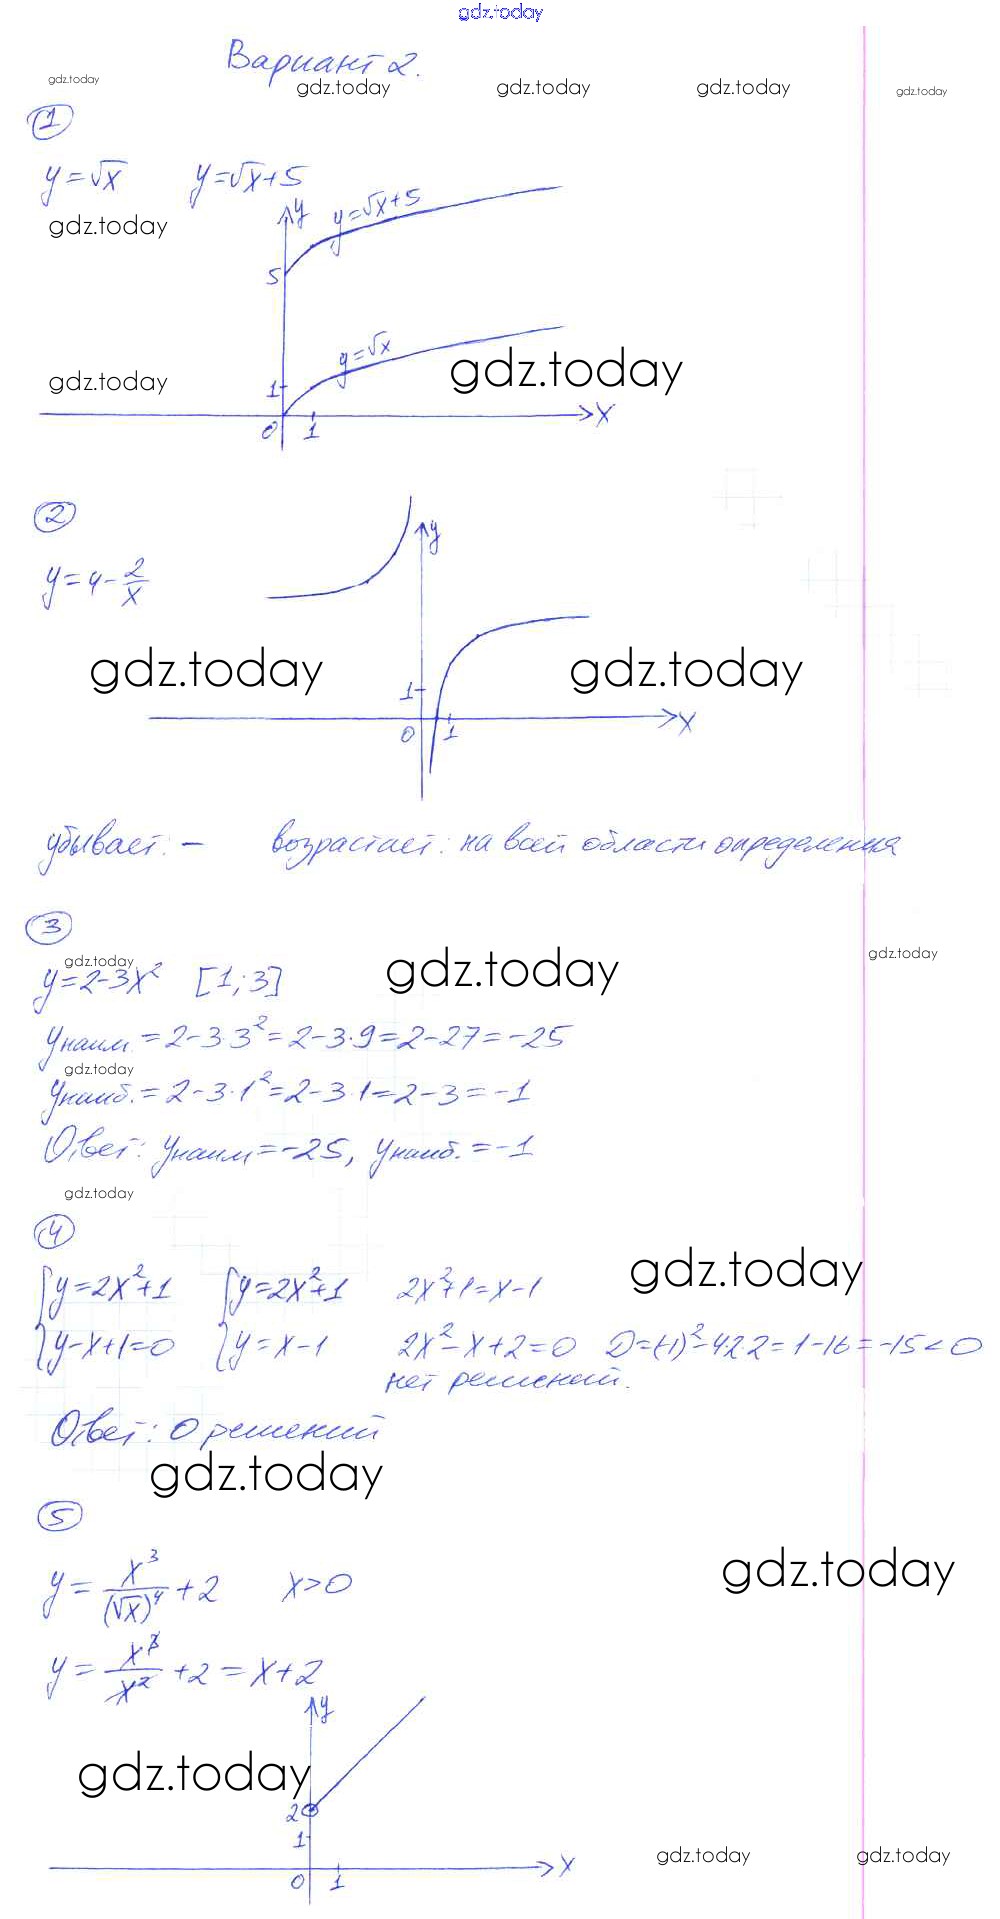 gdz.today
Вариант 2.
gdz.today gdz.today gdz.today gdz.today
1
y=√x y=√x+5
gdz.today
y
y=√x+5
5
y=√x
gdz.today
gdz.today
1
0 1 x
2
y
y=4-2/x
gdz.today gdz.today
1
0 1 x
убывает: – возрастает: на всей области определения
3
gdz.today gdz.today gdz.today
y=2-3x² [1;3]
yнаим.=2-3·3²=2-3·9=2-27=-25
gdz.today
yнаиб.=2-3·1²=2-3·1=2-3=-1
Ответ: yнаим=-25, yнаиб.=-1
gdz.today
4
gdz.today
{y=2x²+1 {y=2x²+1 2x²+1=x-1
{y-x+1=0 {y=x-1 2x²-x+2=0 D=(-1)²-4·2·2=1-16=-15<0
нет решений.
Ответ: 0 решений
gdz.today
5
gdz.today
y=x³/(√x)⁴+2 x>0
y=x³/x²+2=x+2
y
gdz.today
2
1
0 1 x
gdz.today gdz.today